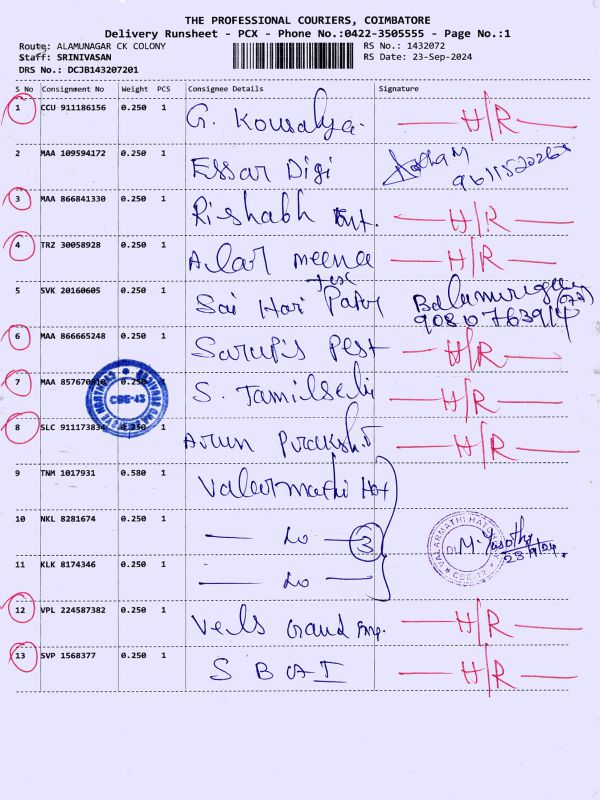 THE PROFESSIONAL COURIERS, COIMBATORE
Delivery Runsheet - PCX - Phone No.:0422-3505555 - Page No.:1
Route: ALAMUNAGAR CK COLONY RS No.: 1432072
Staff: SRINIVASAN RS Date: 23-Sep-2024
DRS No.: DCJB143207201
S No Consignment No Weight PCS Consignee Details Signature
1 CCU 911186156 0.250 1 G. Kousalya. H/R
2 MAA 109594172 0.250 1 Essar Digi
3 MAA 866841330 0.250 1 Rishabh Ent. H/R
4 TRZ 30058928 0.250 1 Alar meena H/R
Tex
5 SVK 20160605 0.250 1 Sai Hari
9080763914
6 MAA 866665248 0.250 1 Sarup's Pest H/R
7 MAA 0.250 1 S. Tamilselvi H/R
CBE-13
8 SLC 911173834 0.250 1 Arun Prakash T H/R
9 TNM 1017931 0.580 1 Valarmathi Hat
10 NKL 8281674 0.250 1 — Do — 3
VALARMATHI HATCH
M. Yasotha
23/9/24.
CBE-12
11 KLK 8174346 0.250 1 — Do —
12 VPL 224587382 0.250 1 Vels Grand Emp. H/R
13 SVP 1568377 0.250 1 S B O A I H/R